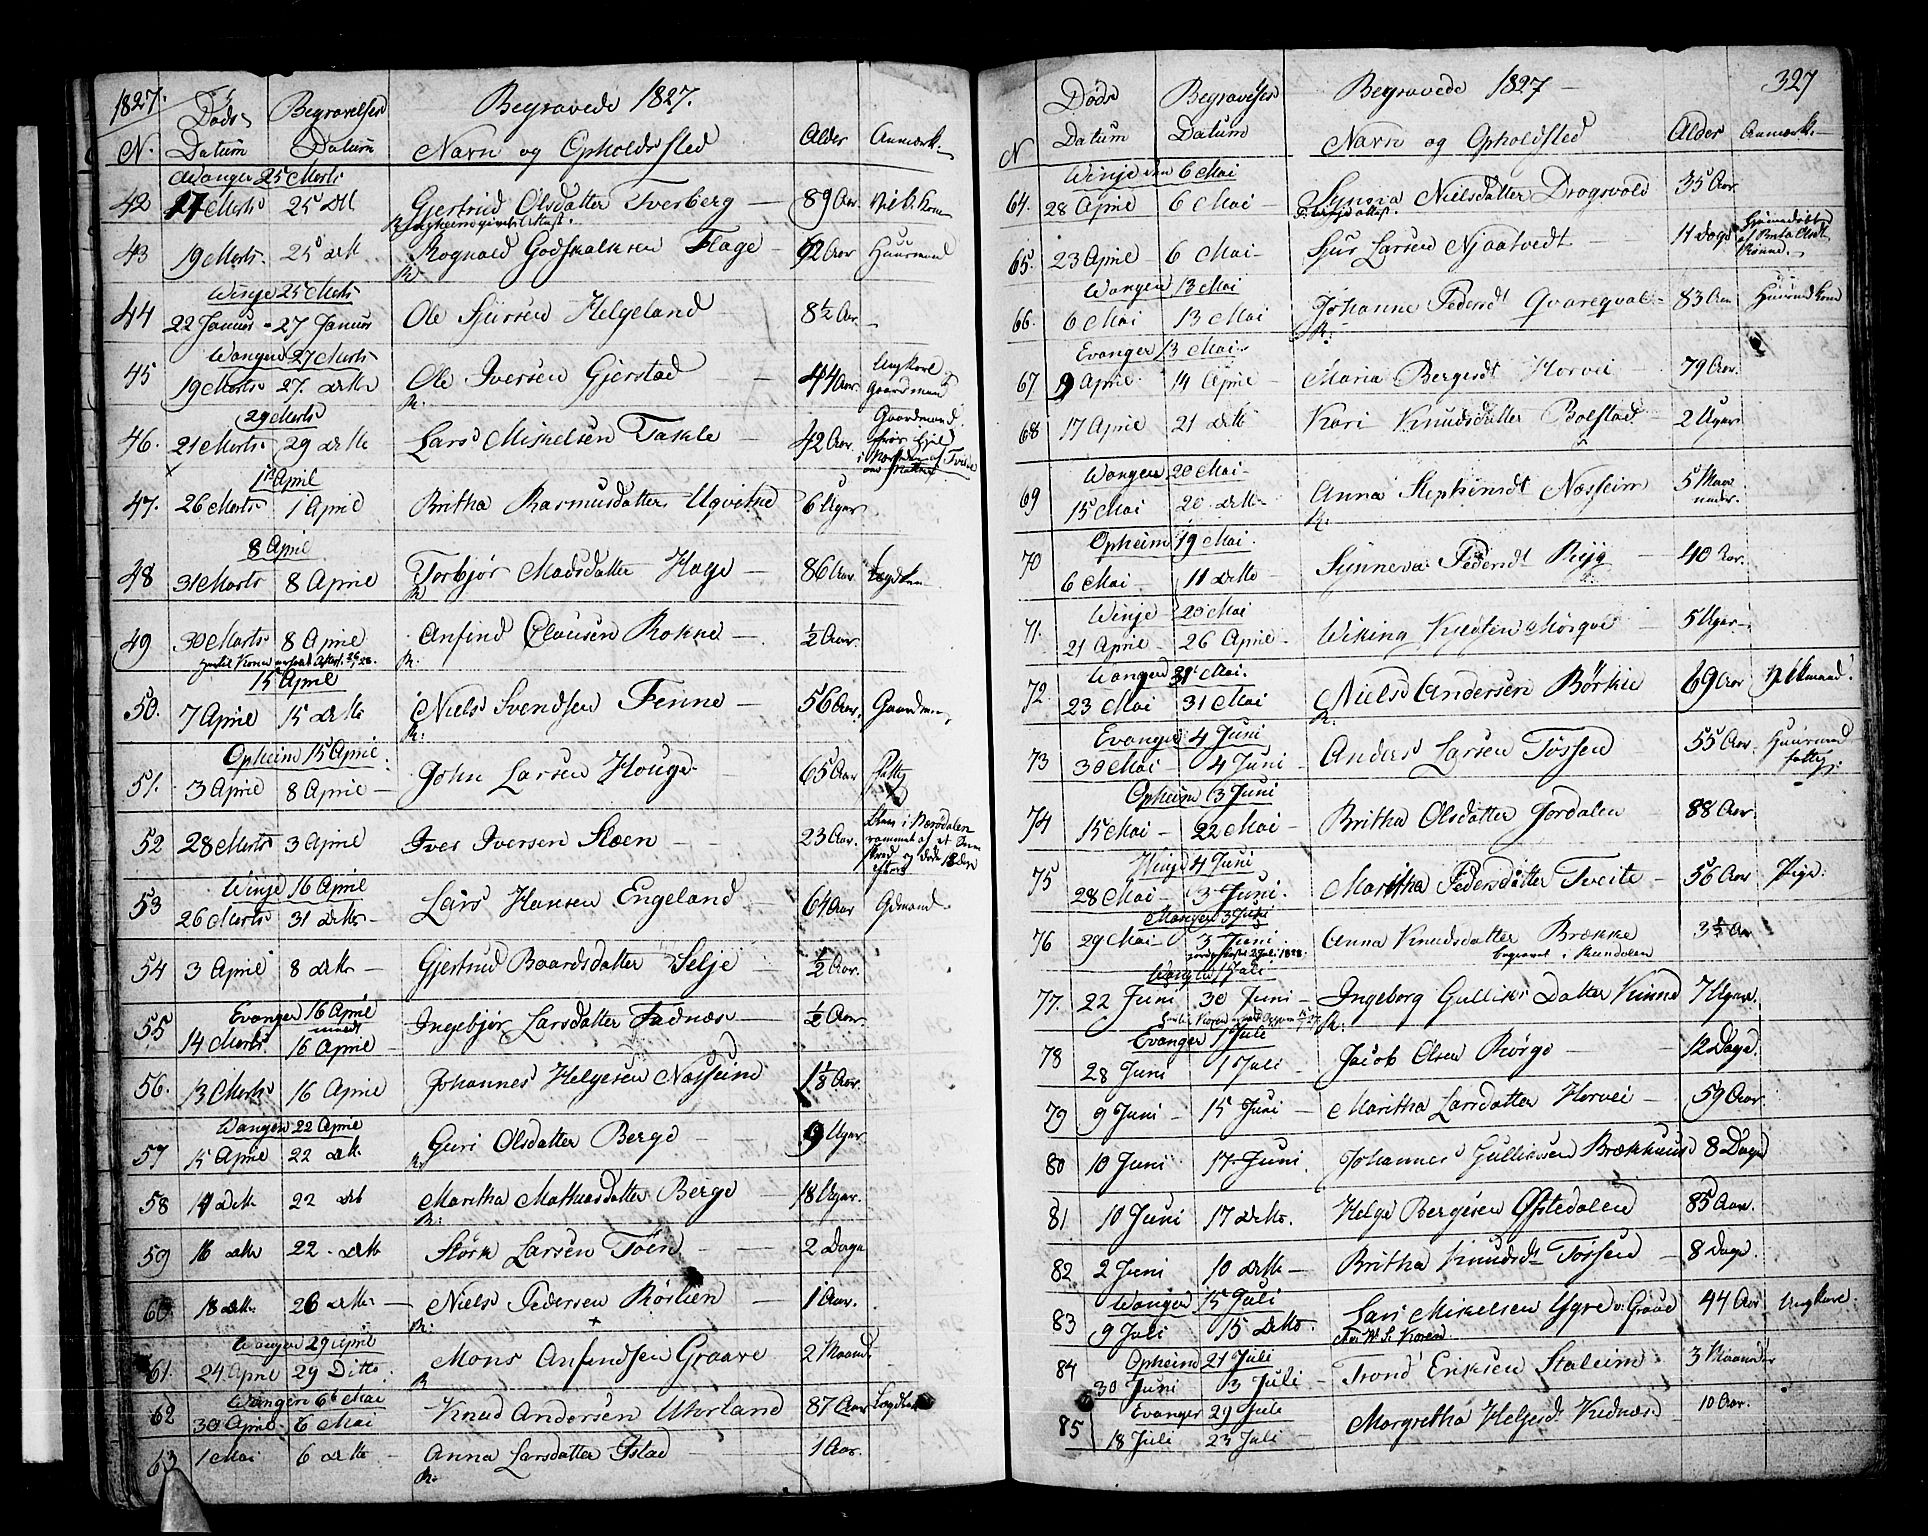 1827. Døds Begravelses Begravede 1827.
N. Datum Datum Navn og Opholdssted Alder Anmærk.
Wanger 25 Marts
42 17 Marts 25 dtt Gjertrud Olsdatter Tverberg — 89 Aar
43 19 Marts 25 dtt Rognald Godskalksen Flage — 92 Aar Huusmand
R.
Winje 25 Marts
44 22 Januar 27 Januar Ole Sjursen Helgeland — 8½ Aar —
Wanger 27 Marts
45 19 Marts 27. dtto Ole Iversen Gjerstad — 44 Aar Ungkarl og Gaardmand
R.
29 Marts
46. 21 Marts 29 dtto Lars Mikelsen Takle — 42 Aar Gaardmand
1 April
47. 26 Marts 1 April Britha Rasmusdatter Ugvikne 6 Uger
8 April
48 31 Marts 8 April Torbjør Madsdatter Hage — 86 Aar Lægdlem
R
49 30 Marts 8 April Anfind Clausen Rokne — ½ Aar
R:
15 April
50. 7 April 15 dtto Niels Svendsen Fenne — 56 Aar. Gaardman,
R:
Opheim 15 April
51. 3 April 8 April — John Larsen Houge 65 Aar fattig
52 28 Marts 3 April Iver Iversen Sloen — 23 Aar.
Winje 16 April
53 26 Marts 31 dtto Lars Hansen Engeland — 64 Aar Gdmand.
54 3 April 8 dtto — Gjertrud Baardsdatter Selje — ½ Aar.
Evanger 16 April
55 14 Marts 16 April Ingebjør Larsdatter Fadnæs — ½ Aar.
56. 13 Marts 16 April Johannes Helgesen Næssund 1⅛ Aar.
Wanger 22 April
57 15 April 22 dtto Guri Olsdatter Berge — 9 Uger
R.
58 14 dtto 22 dtto Maritha Mathiasdatter Berge — 18 Uger.
R:
59 16 dtto 22 dtto Størk Larsen Tøen — 2 Dage
60 18 dtto 26 dtto — Niels Pedersen Rørlien — 1 Aar.
R:
Wanger 29 April
61. 24 April 29 Ditto Mons Anfindsen Graave 2 Maand.
R
Wanger 6 Mai
62 30 April 6 Mai Knud Andersen Uhrland 87 Aar Lægdlem
63 1 Mai 6 dtto Anna Larsdatter Istad 1 Aar
R:
327
Døds Begravelses Begravede 1827 —
N Datum Datum Navn og Opholdsted Alder Anmærk. —
Winje den 6 Mai
64. 28 April 6 Mai — Synnva Nielsdatter Dragsvold 35 Aar
65. 23 April 6 Mai — Sjur Larsen Njaatvedt — 11 Dage
Wanger 13 Mai
66. 6 Mai 13 Mai Johanne Pedersdt Qvareqval — 83 Aar
R:
Evanger 13 Mai
67 9 April 14 April — Maria Bergesdt Horvei 79 Aar.
68 17 April 21 dtto Kari Knudsdatter Bolstad 2 Uger.
Wanger 20 Mai
69 15 Mai 20 dtto — Anna Stephensdt Næsheim 5 Maaneder.
R:
Opheim 19 Mai.
70 6 Mai — 11 dtto — Sunneva Pedersdt Ryg 40 Aar.
Winje 20 Mai
71. 21 April 26 April — Wiking Knudsen Mørqve 5 Uger —
Wanger 31 Mai.
72. 23 Mai 31 Mai Niels Andersen Børkie 69 Aar
R.
Evanger 4 Juni
73 30 Mai — 4 Juni — Anders Larsen Tøssen 55 Aar. Huusmand fattig.
Opheim 3 Juni
74 15 Mai — 22 Mai — Britha Olsdatter Jordalen 88 Aar.
Winje 4 Juni
75 28 Mai 3 Juni. Maritha Pedersdatter Tveite — 56 Aar Pige.
Wanger 3 Juni
76 29 Mai 3 Juni Anna Knudsdatter Brække
begravet i Rundalen
Wanger 1 Juli
77. 22 Juni 30 Juni — Ingeborg Gulliks Datter Kinne 7 Uger.
R:
Evanger 1 Juli
78 28 Juni 1 Juli — Jacob Olsen Rørge — 12 Dage.
79 9 Juni — 15 Juni — Maritha Larsdatter Horvei — 59 Aar.
80 10 Juni 17 Juni. Johannes Gulliksen Brækhuus 8 Dage
81 10 Juni 17 dtto. Helge Bergesen Øftedalen 85 Aar.
82 2 Juni 10 dtto — Britha Knudsdt Tøssen — 8 Dage.
Wanger 15 Juli
83 9 Juli 15 dtto. Lars Mikelsen Ygre v: Graue 44 Aar Ungkarl.
Opheim 21 Juli
84 30 Juni 3 Juli — Trond Eriksen Stalheim 3 Maaneder
Evanger 29 Juli
85 18 Juli 23 Juli — Margretha Helgesdt Kidnæs 10 Aar.